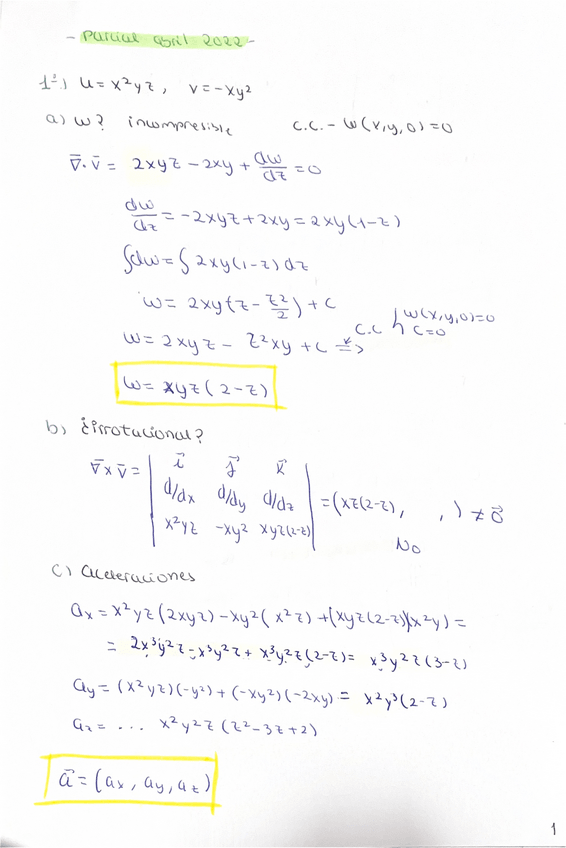 - Parcial abril 2022 -
1º) u = x²yz, v = -xy²
a) w? incompresible C.C. - w(x,y,0) = 0
∇̄·v̄ = 2xyz - 2xy + dw/dz = 0
dw/dz = -2xyz + 2xy = 2xy(1-z)
∫dw = ∫2xy(1-z)dz
w = 2xy(z - z²/2) + C
w = 2xyz - z²xy + C => C.C { w(x,y,0)=0 C=0
w = xyz(2-z)
b) ¿irrotacional?
∇̄×v̄ = | i⃗ j⃗ k⃗
d/dx d/dy d/dz
x²yz -xy² xyz(2-z) | = (xz(2-z), , ) ≠ 0⃗
No
c) aceleraciones
ax = x²yz(2xyz) - xy²(x²z) + (xyz(2-z))(x²y) =
= 2x³y²z - x³y²z + x³y²z(2-z) = x³y²z(3-z)
ay = (x²yz)(-y²) + (-xy²)(-2xy) = x²y³(2-z)
az = ... x²y²z(z²-3z+2)
a⃗ = (ax, ay, az)
1